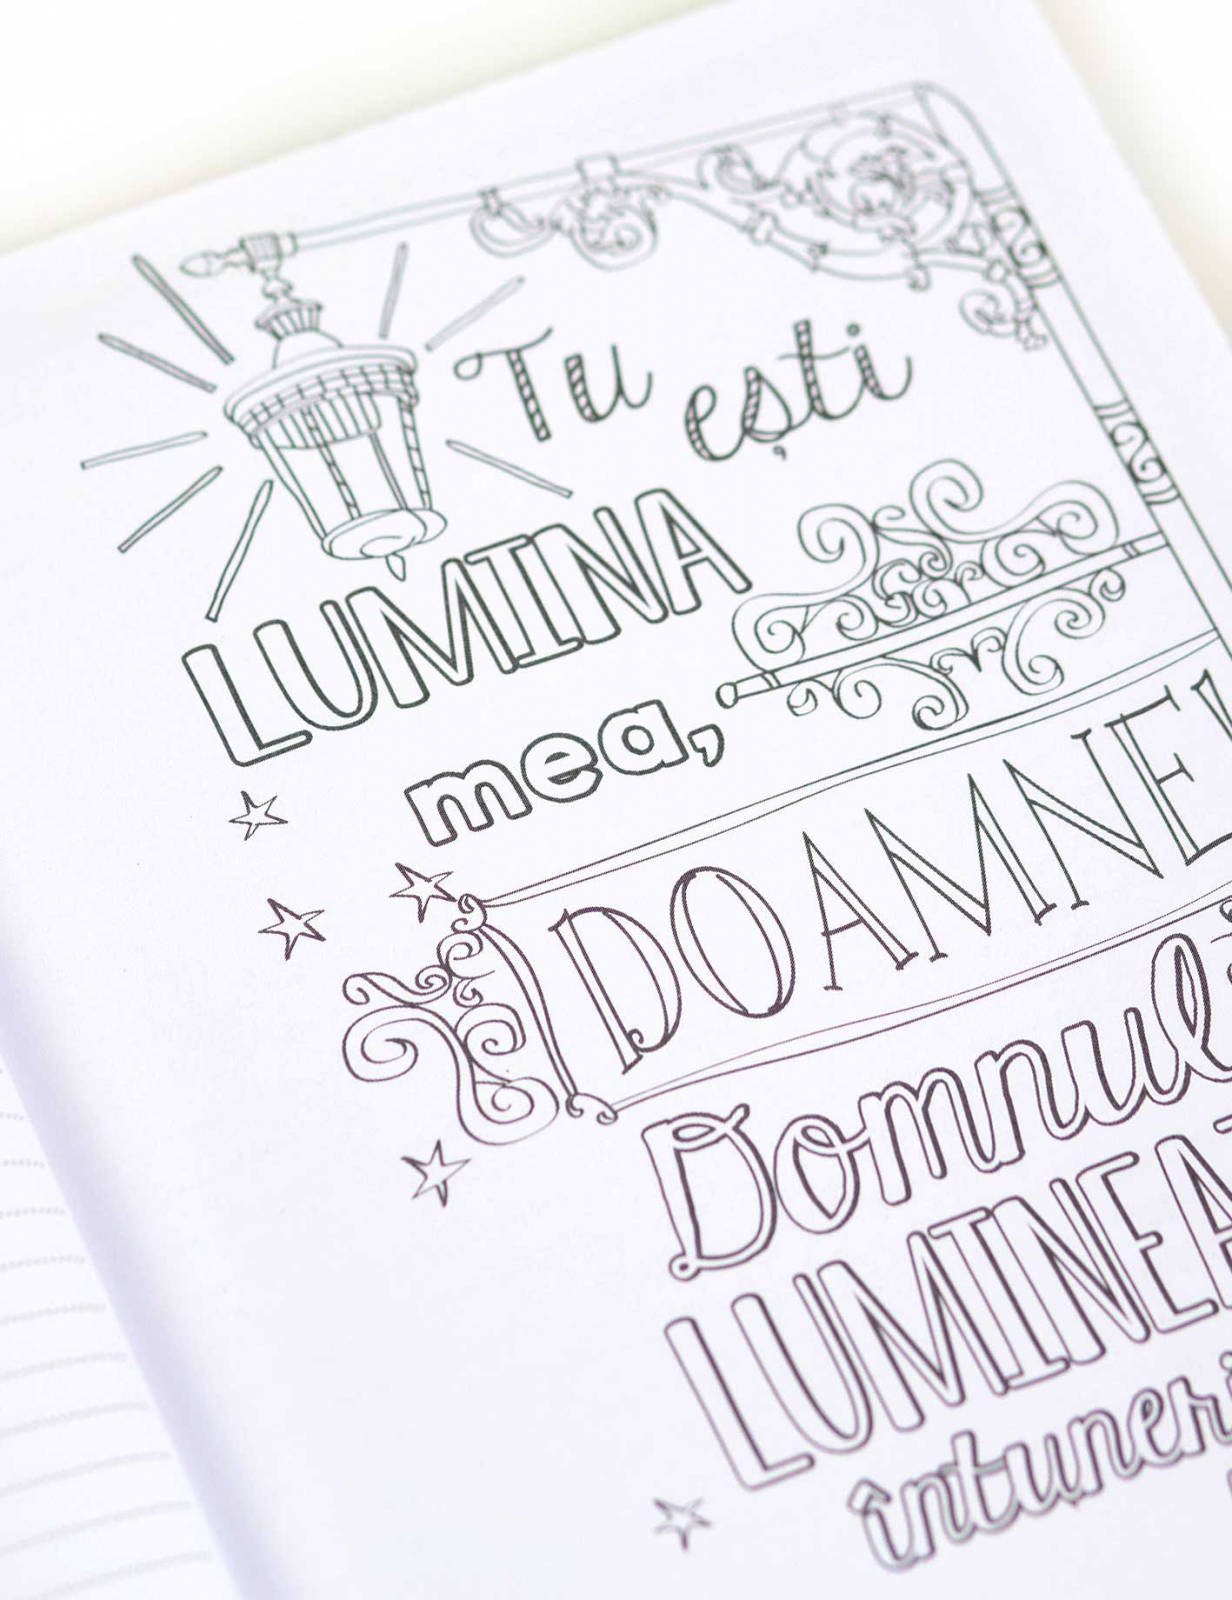 Tu ești
LUMINA
mea,
DOAMNE!
Domnul
LUMINEA
întuneri